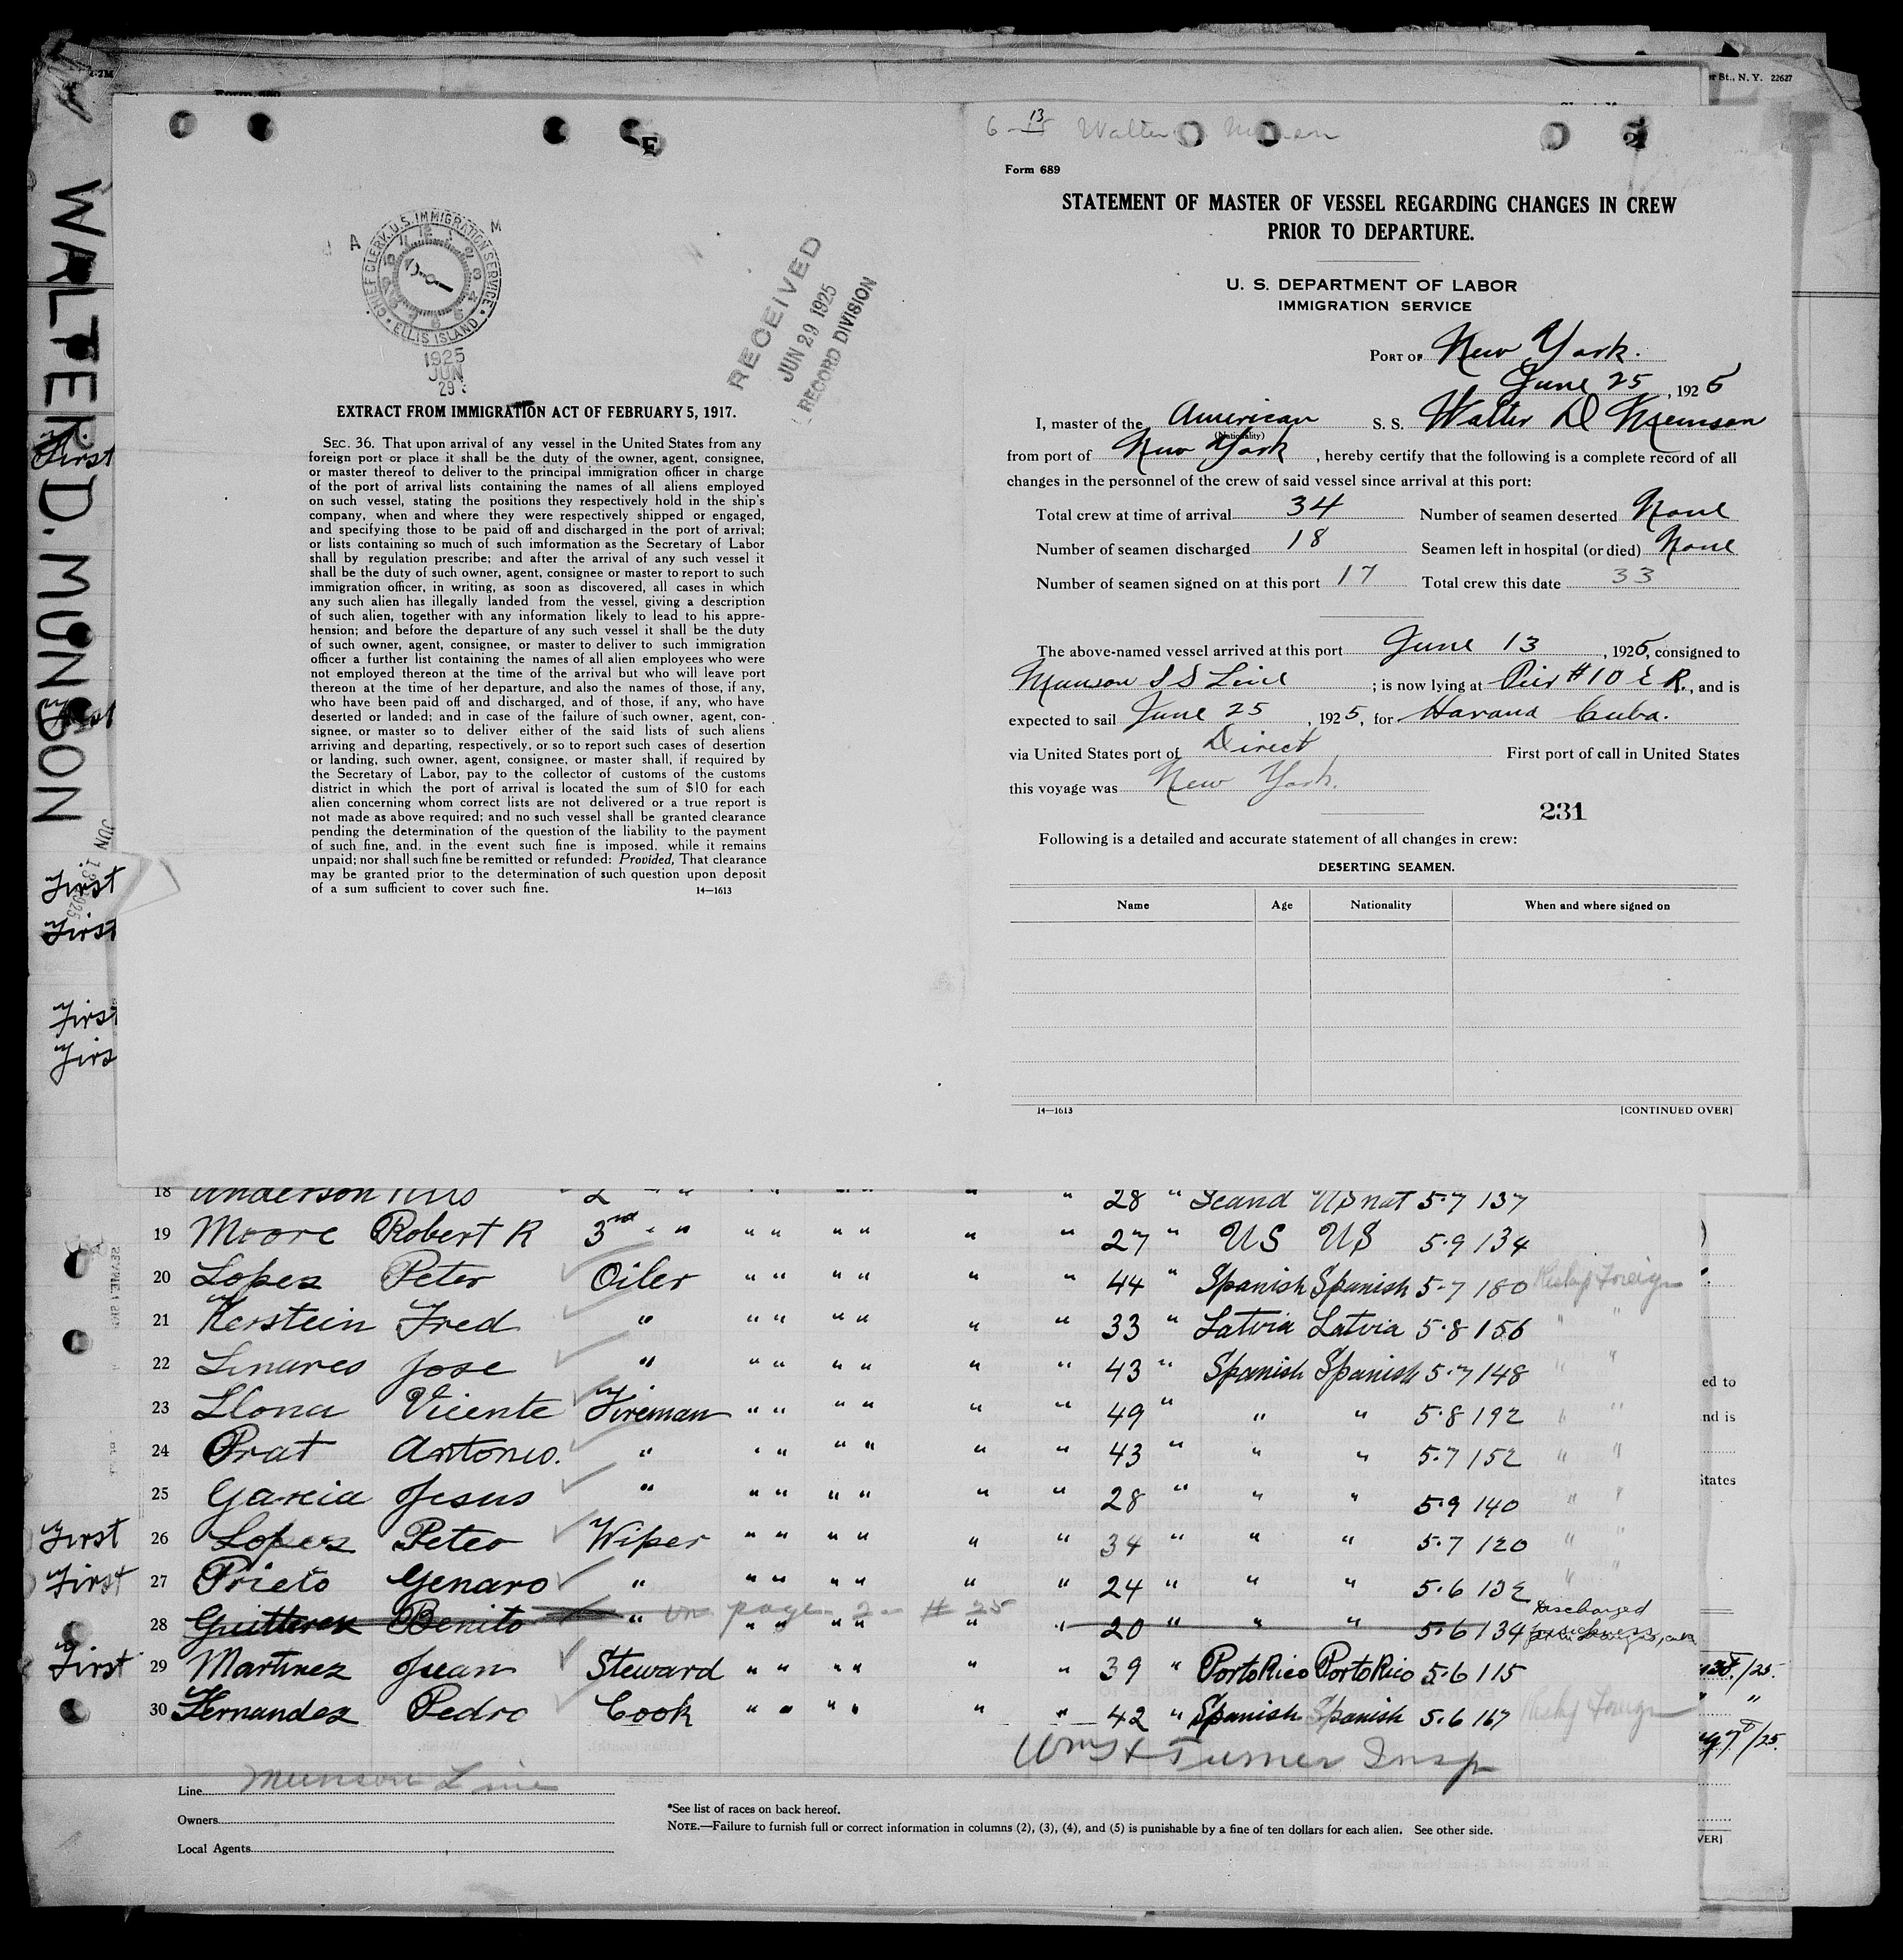 er St., N. Y. 22627
WALTER D. MUNSON
First
First
First
First
First
JUN 13 1925
E
A M
CHIEF CLERK U.S. IMMIGRATION SERVICE
ELLIS ISLAND
1925
JUN
29
RECEIVED
JUN 29 1925
RECORD DIVISION
EXTRACT FROM IMMIGRATION ACT OF FEBRUARY 5, 1917.
SEC. 36. That upon arrival of any vessel in the United States from any
foreign port or place it shall be the duty of the owner, agent, consignee,
or master thereof to deliver to the principal immigration officer in charge
of the port of arrival lists containing the names of all aliens employed
on such vessel, stating the positions they respectively hold in the ship's
company, when and where they were respectively shipped or engaged,
and specifying those to be paid off and discharged in the port of arrival;
or lists containing so much of such imformation as the Secretary of Labor
shall by regulation prescribe; and after the arrival of any such vessel it
shall be the duty of such owner, agent, consignee or master to report to such
immigration officer, in writing, as soon as discovered, all cases in which
any such alien has illegally landed from the vessel, giving a description
of such alien, together with any information likely to lead to his appre-
hension; and before the departure of any such vessel it shall be the duty
of such owner, agent, consignee, or master to deliver to such immigration
officer a further list containing the names of all alien employees who were
not employed thereon at the time of the arrival but who will leave port
thereon at the time of her departure, and also the names of those, if any,
who have been paid off and discharged, and of those, if any, who have
deserted or landed; and in case of the failure of such owner, agent, con-
signee, or master so to deliver either of the said lists of such aliens
arriving and departing, respectively, or so to report such cases of desertion
or landing, such owner, agent, consignee, or master shall, if required by
the Secretary of Labor, pay to the collector of customs of the customs
district in which the port of arrival is located the sum of $10 for each
alien concerning whom correct lists are not delivered or a true report is
not made as above required; and no such vessel shall be granted clearance
pending the determination of the question of the liability to the payment
of such fine, and, in the event such fine is imposed, while it remains
unpaid; nor shall such fine be remitted or refunded: Provided, That clearance
may be granted prior to the determination of such question upon deposit
of a sum sufficient to cover such fine. 14—1613
6-13 Walter Munson
Form 689
STATEMENT OF MASTER OF VESSEL REGARDING CHANGES IN CREW
PRIOR TO DEPARTURE.
U. S. DEPARTMENT OF LABOR
IMMIGRATION SERVICE
PORT OF New York.
June 25, 1925
I, master of the American S. S. Walter D Munson
(Nationality)
from port of New York, hereby certify that the following is a complete record of all
changes in the personnel of the crew of said vessel since arrival at this port:
Total crew at time of arrival 34 Number of seamen deserted None
Number of seamen discharged 18 Seamen left in hospital (or died) None
Number of seamen signed on at this port 17 Total crew this date 33
The above-named vessel arrived at this port June 13, 1925, consigned to
Munson S S Line; is now lying at Pier #10 E R., and is
expected to sail June 25, 1925, for Havana Cuba.
via United States port of Direct First port of call in United States
this voyage was New York.
231
Following is a detailed and accurate statement of all changes in crew:
DESERTING SEAMEN.
Name Age Nationality When and where signed on
14—1613 [CONTINUED OVER]
18 Anderson Nils 2 " " " " " " " " 28 " Scand US nat 5-7 137
19 Moore Robert R 3rd " " " " " " " " 27 " US US 5-9 134
20 Lopez Peter Oiler " " " " " " 44 " Spanish Spanish 5-7 180 Reship Foreign
21 Kerstein Fred " " " " " " " 33 " Latvia Latvia 5-8 156 " "
22 Linares Jose " " " " " " " 43 " Spanish Spanish 5-7 148 " "
23 Llona Vicente Fireman " " " " " " 49 " " " 5-8 192 " "
24 Prat Antonio. " " " " " " " 43 " " " 5-7 152 " "
25 Garcia Jesus " " " " " " " 28 " " " 5-9 140 " "
First 26 Lopez Peter Wiper " " " " " " 34 " " " 5-7 120 " "
First 27 Prieto Genaro " " " " " " " 24 " " " 5-6 132 " "
28 Guitterez Benito " on page 2 - # 25 " " " " " 20 " " " 5-6 134 Discharged
First 29 Martinez Juan Steward " " " " " " 39 " Porto Rico Porto Rico 5-6 115
30 Hernandez Pedro Cook " " " " " " 42 " Spanish Spanish 5-6 167 Reship Foreign
Turner Insp
Line Munson Line
Owners
Local Agents
*See list of races on back hereof.
NOTE.—Failure to furnish full or correct information in columns (2), (3), (4), and (5) is punishable by a fine of ten dollars for each alien. See other side.
ed to
nd is
States
/25.
" "
/25.
VER]